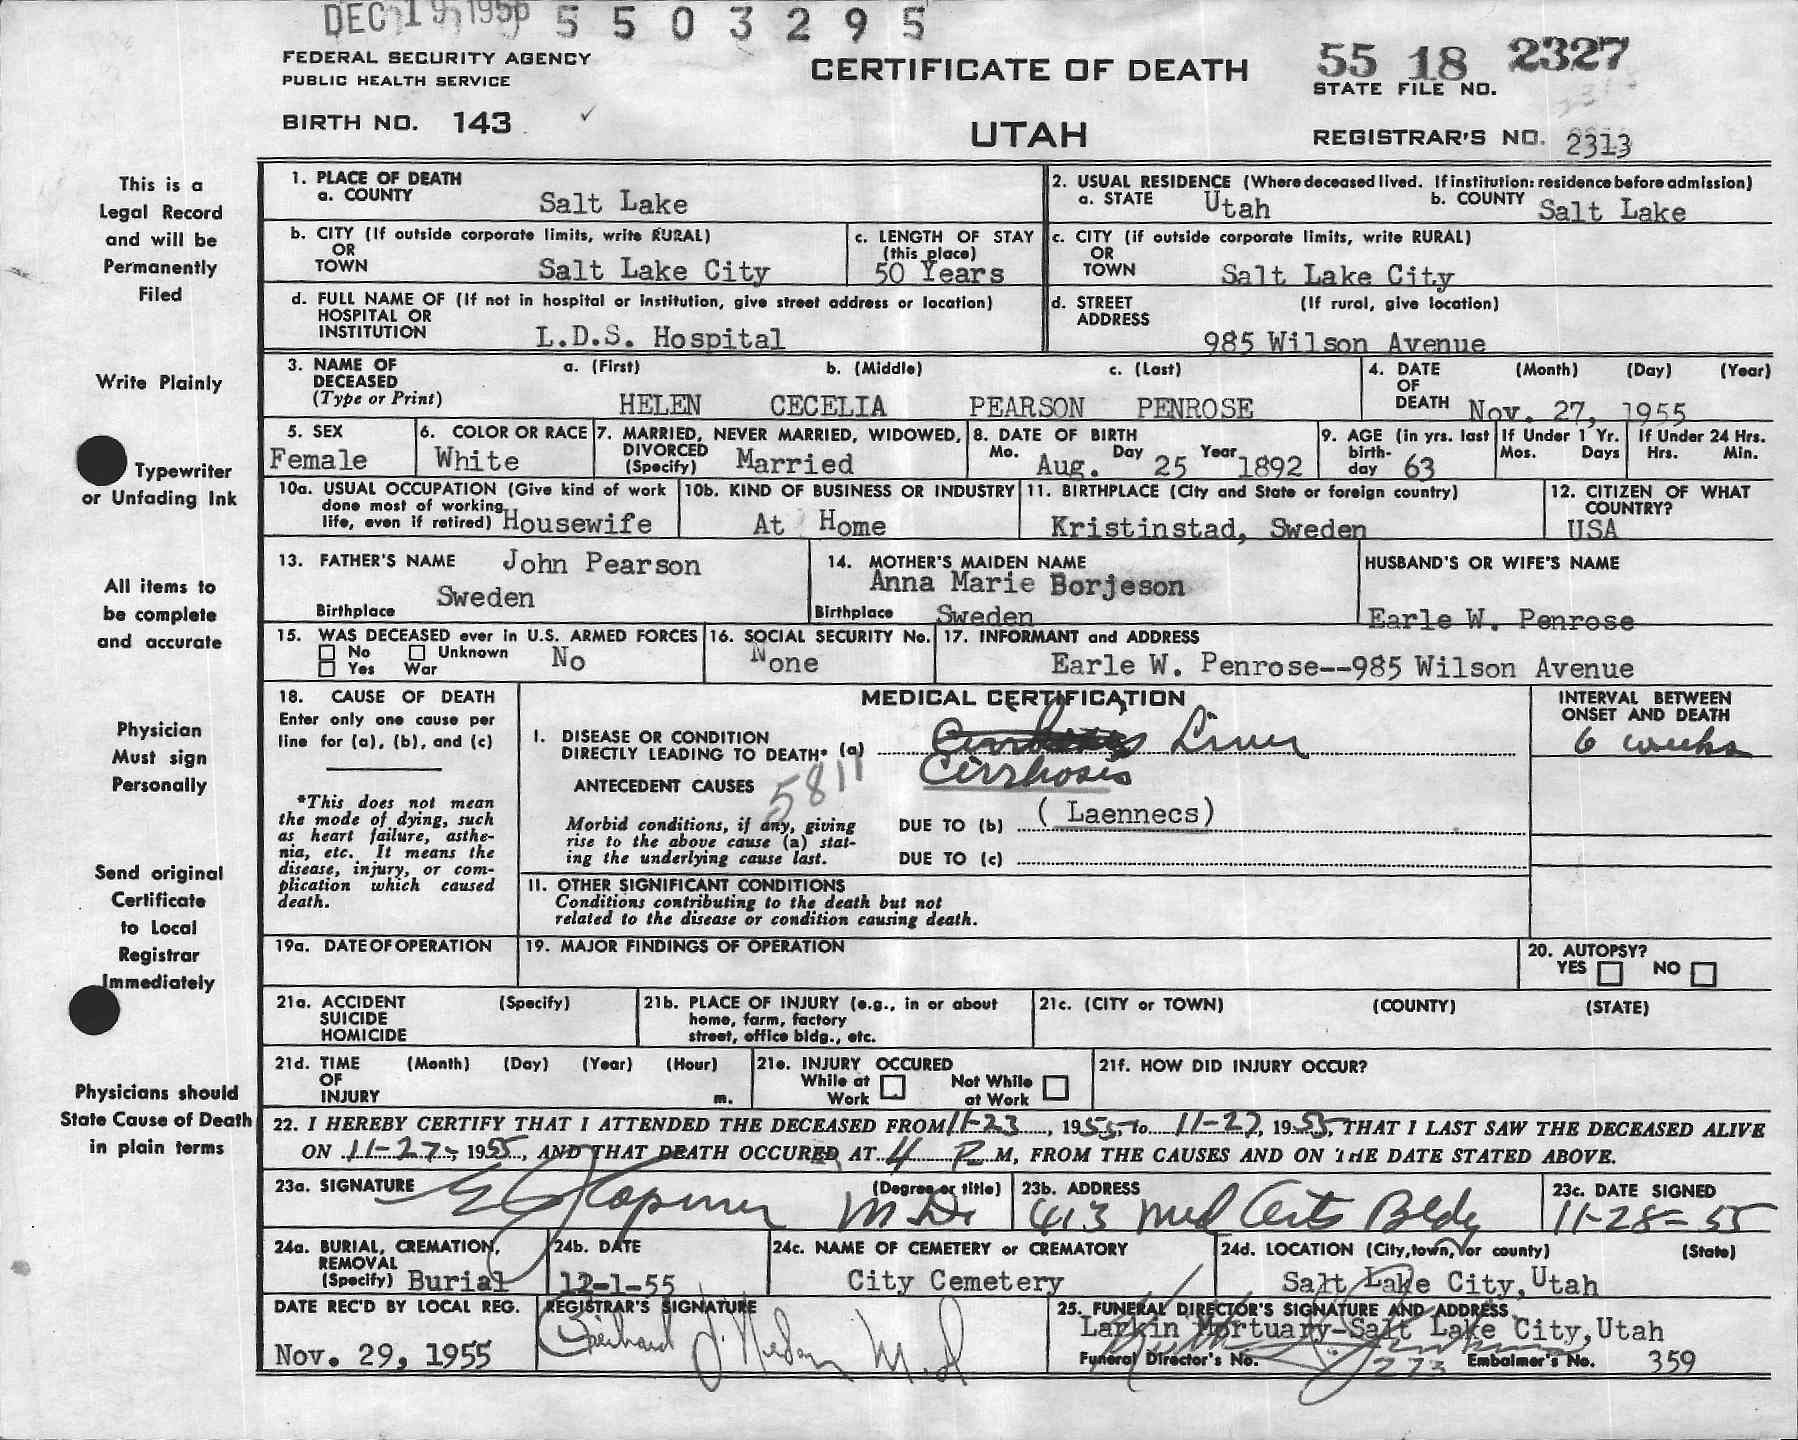 DEC 19 1955 5 5 0 3 2 9 5
FEDERAL SECURITY AGENCY
PUBLIC HEALTH SERVICE
CERTIFICATE OF DEATH
55 18 2327
STATE FILE NO.
BIRTH NO. 143
UTAH
REGISTRAR'S NO. 2313
This is a
Legal Record
and will be
Permanently
Filed
Write Plainly
Typewriter
or Unfading Ink
All items to
be complete
and accurate
Physician
Must sign
Personally
Send original
Certificate
to Local
Registrar
Immediately
Physicians should
State Cause of Death
in plain terms
1. PLACE OF DEATH
a. COUNTY Salt Lake
2. USUAL RESIDENCE (Where deceased lived. If institution: residence before admission)
a. STATE Utah b. COUNTY Salt Lake
b. CITY (If outside corporate limits, write RURAL)
OR
TOWN Salt Lake City
c. LENGTH OF STAY
(this place)
50 Years
c. CITY (if outside corporate limits, write RURAL)
OR
TOWN Salt Lake City
d. FULL NAME OF (If not in hospital or institution, give street address or location)
HOSPITAL OR
INSTITUTION L.D.S. Hospital
d. STREET (If rural, give location)
ADDRESS
985 Wilson Avenue
3. NAME OF a. (First) b. (Middle) c. (Last)
DECEASED
(Type or Print) HELEN CECELIA PEARSON PENROSE
4. DATE (Month) (Day) (Year)
OF
DEATH Nov. 27, 1955
5. SEX
Female
6. COLOR OR RACE
White
7. MARRIED, NEVER MARRIED, WIDOWED,
DIVORCED
(Specify) Married
8. DATE OF BIRTH
Mo. Aug. Day 25 Year 1892
9. AGE (in yrs. last
birth-
day 63
If Under 1 Yr.
Mos. Days
If Under 24 Hrs.
Hrs. Min.
10a. USUAL OCCUPATION (Give kind of work
done most of working
life, even if retired) Housewife
10b. KIND OF BUSINESS OR INDUSTRY
At Home
11. BIRTHPLACE (City and State or foreign country)
Kristinstad, Sweden
12. CITIZEN OF WHAT
COUNTRY?
USA
13. FATHER'S NAME John Pearson
Birthplace Sweden
14. MOTHER'S MAIDEN NAME
Anna Marie Borjeson
Birthplace Sweden
HUSBAND'S OR WIFE'S NAME
Earle W. Penrose
15. WAS DECEASED ever in U.S. ARMED FORCES
No Unknown No
Yes War
16. SOCIAL SECURITY No.
None
17. INFORMANT and ADDRESS
Earle W. Penrose--985 Wilson Avenue
18. CAUSE OF DEATH
Enter only one cause per
line for (a), (b), and (c)
*This does not mean
the mode of dying, such
as heart failure, asthe-
nia, etc. It means the
disease, injury, or com-
plication which caused
death.
MEDICAL CERTIFICATION
INTERVAL BETWEEN
ONSET AND DEATH
6 weeks
I. DISEASE OR CONDITION
DIRECTLY LEADING TO DEATH* (a) Liver
Cirrhosis
ANTECEDENT CAUSES 5811
Morbid conditions, if any, giving
rise to the above cause (a) stat-
ing the underlying cause last.
DUE TO (b) (Laennecs)
DUE TO (c)
II. OTHER SIGNIFICANT CONDITIONS
Conditions contributing to the death but not
related to the disease or condition causing death.
19a. DATE OF OPERATION
19. MAJOR FINDINGS OF OPERATION
20. AUTOPSY?
YES NO
21a. ACCIDENT (Specify)
SUICIDE
HOMICIDE
21b. PLACE OF INJURY (e.g., in or about
home, farm, factory
street, office bldg., etc.
21c. (CITY or TOWN) (COUNTY) (STATE)
21d. TIME (Month) (Day) (Year) (Hour)
OF
INJURY m.
21e. INJURY OCCURED
While at Work Not While at Work
21f. HOW DID INJURY OCCUR?
22. I HEREBY CERTIFY THAT I ATTENDED THE DECEASED FROM 11-23, 1955, to 11-27, 1955, THAT I LAST SAW THE DECEASED ALIVE
ON 11-27, 1955, AND THAT DEATH OCCURED AT 4 P M, FROM THE CAUSES AND ON THE DATE STATED ABOVE.
23a. SIGNATURE (Degree or title) M.D.
23b. ADDRESS
413 Med Arts Bldg
23c. DATE SIGNED
11-28-55
24a. BURIAL, CREMATION,
REMOVAL
(Specify) Burial
24b. DATE
12-1-55
24c. NAME OF CEMETERY or CREMATORY
City Cemetery
24d. LOCATION (City, town, or county) (State)
Salt Lake City, Utah
DATE REC'D BY LOCAL REG.
Nov. 29, 1955
REGISTRAR'S SIGNATURE
25. FUNERAL DIRECTOR'S SIGNATURE AND ADDRESS
Larkin Mortuary-Salt Lake City, Utah
Funeral Director's No. 273 Embalmer's No. 359